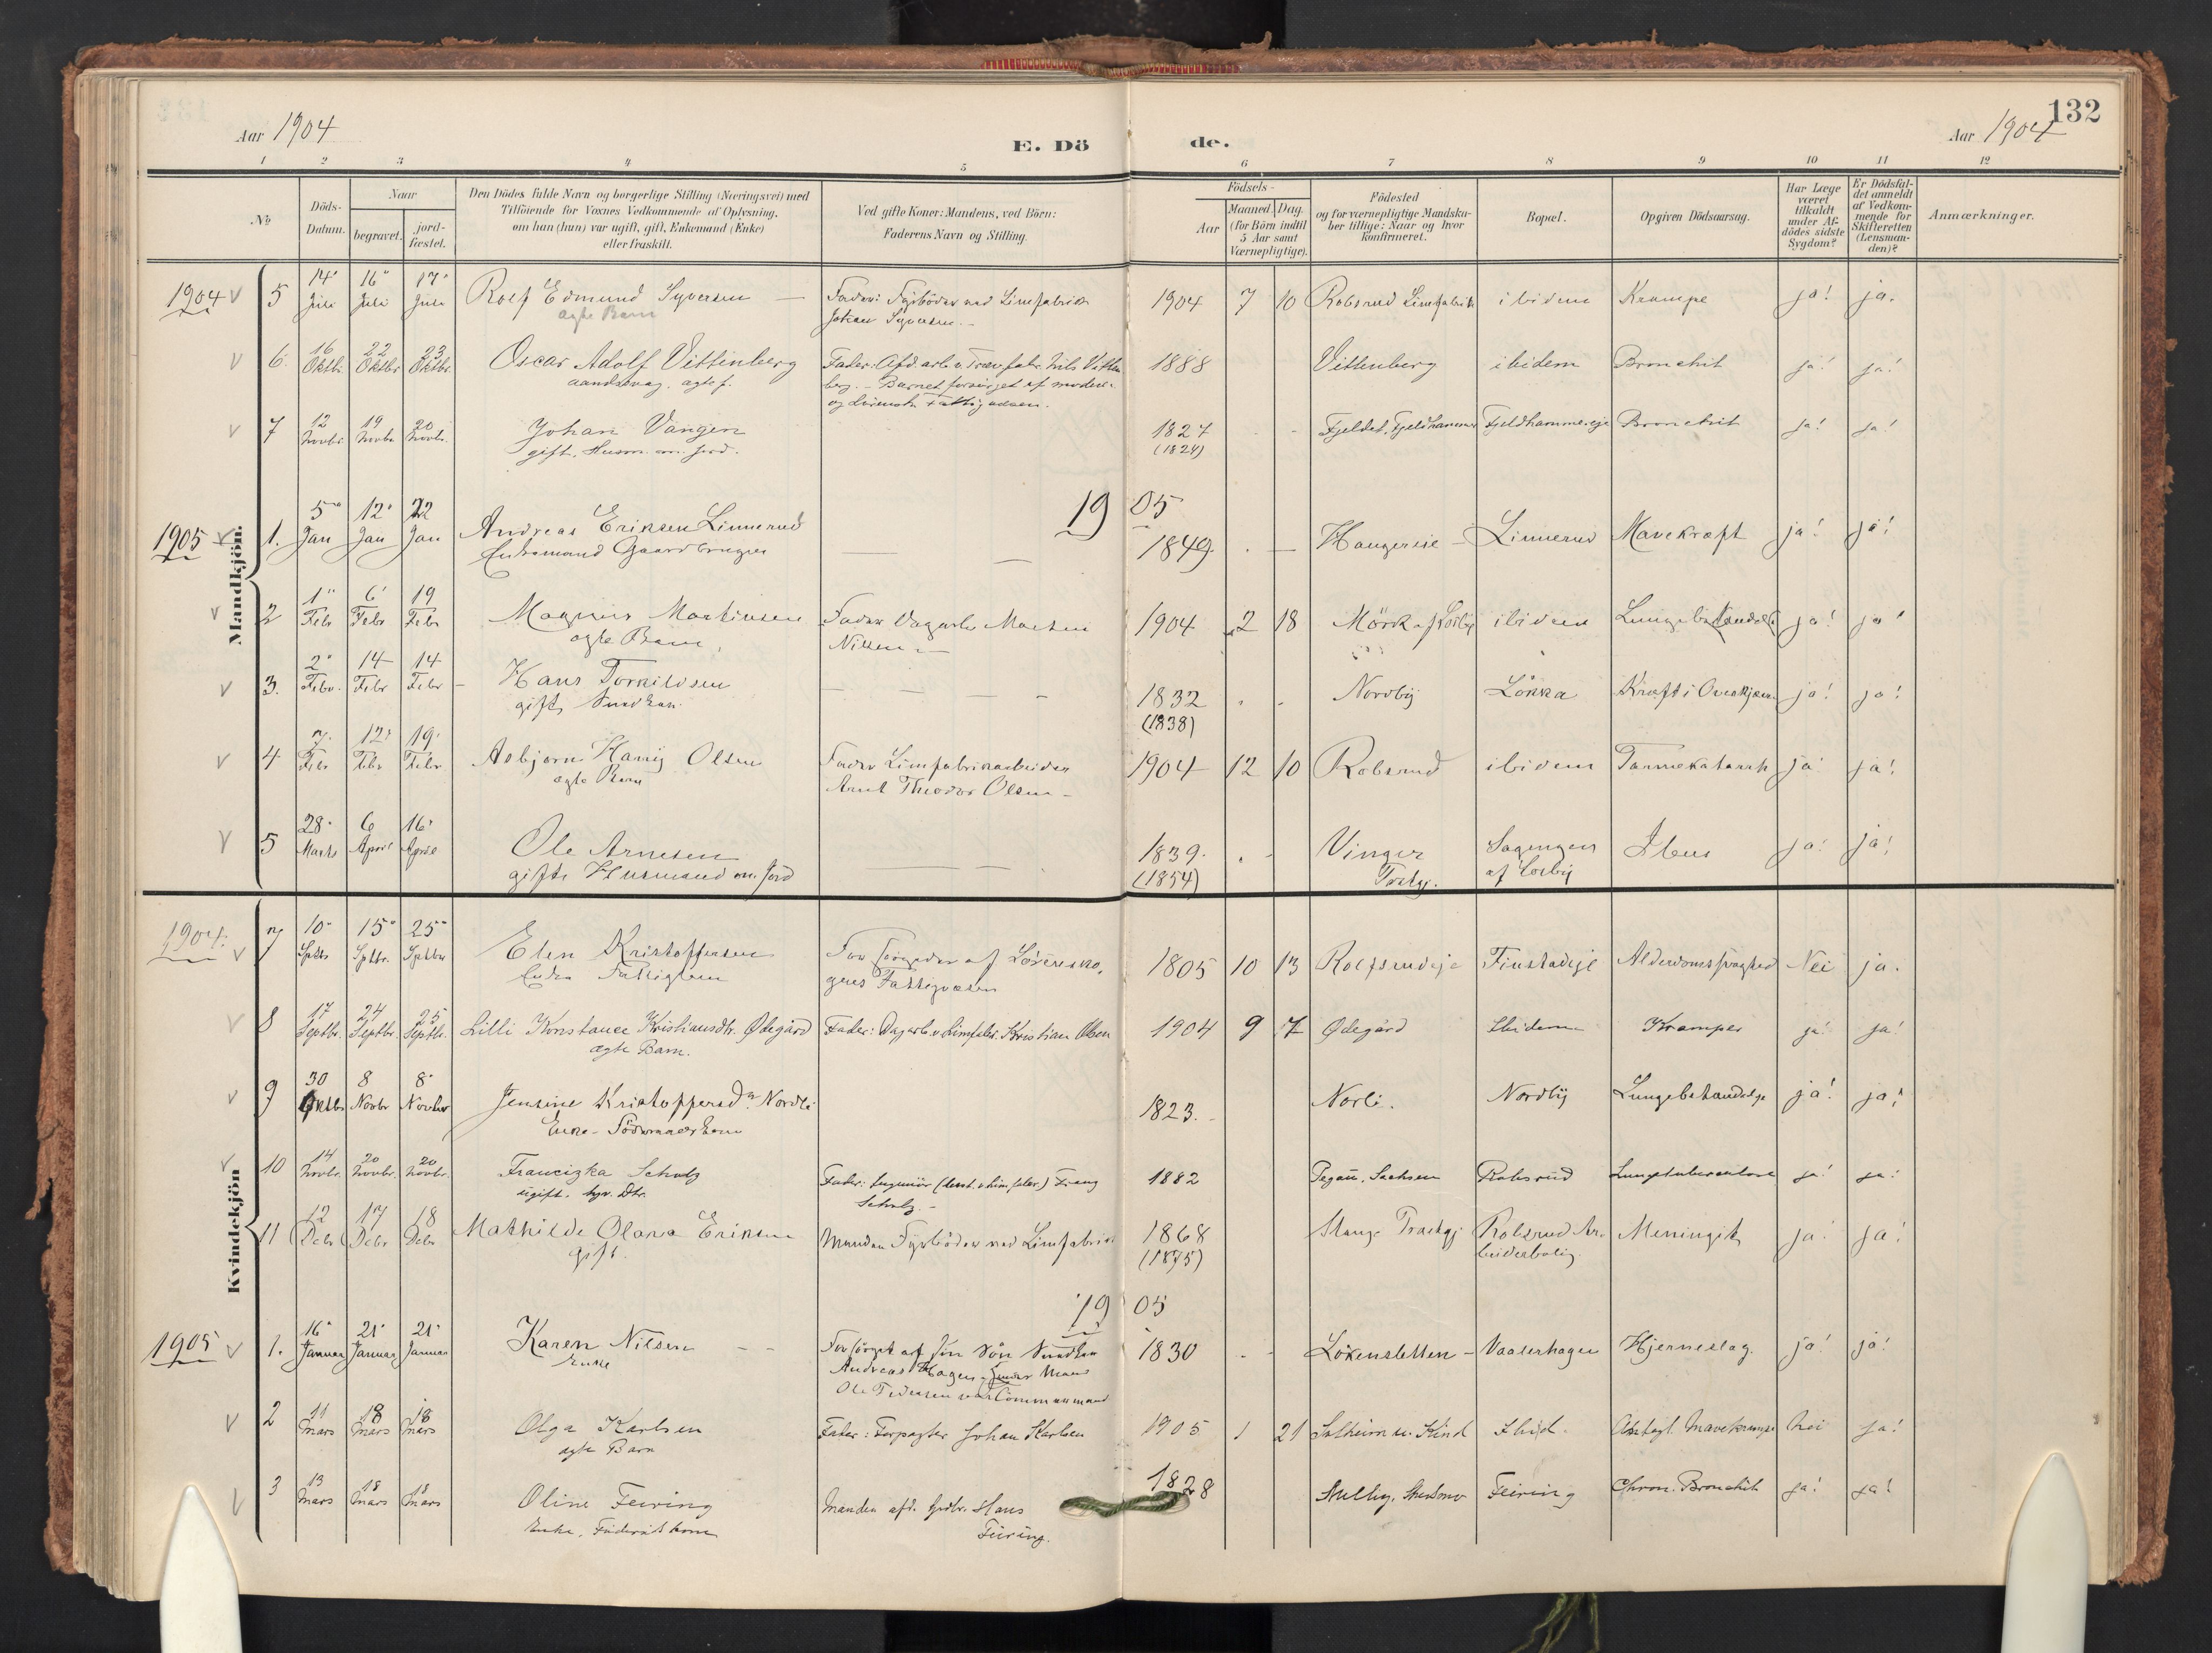 132
Aar 1904
E. Dö de.
Aar 1904
1 2 3 4 5 6 7 8 9 10 11 12
No
Döds-Datum.
Naar
begravet.
jord-fæstet.
Den Dödes fulde Navn og borgerlige Stilling (Næringsvei) med
Tilföiende for Voxnes Vedkommende af Oplysning,
om han (hun) var ugift, gift, Enkemand (Enke)
eller fraskilt.
Ved gifte Koner: Mandens, ved Börn:
Faderens Navn og Stilling.
Födsels-
Aar
Maaned. Dag.
(for Börn indtil
5 Aar samt
Værnepligtige).
Födested
og for værnepligtige Mandska-
ber tillige: Naar og hvor
konfirmeret.
Bopæl.
Opgiven Dödsaarsag.
Har Læge
været
tilkaldt
under Af-
dödes sidste
Sygdom?
Er Dödsfal-
det anmeldt
af Vedkom-
mende for
Skifteretten
(Lensman-
den)?
Anmærkninger.
Mandkjön.
1904 5 14 Juli 16 Juli 17 Juli Rolf Edmund Syversen Fader: Fyrböder ved Limfabrik 1904 7 10 Robsrud Limfabrik ibidem Krampe ja! ja.
agte Barn Johan Syversen
6. 16 Oktbr. 22 Oktbr 23 Oktbr. Oscar Adolf Vittenberg Fader: Afd. arb. v. Træv.fabr. Nils Vitten 1888 Vittenberg ibidem Bronchit ja! ja!
aandssvag. agte f. berg. - Barnet forsørget af moderen
og Lørensk. Fattigvæsen.
7 12 Novbr. 19 Novbr 20 Novbr. Johan Vangen 1827 Fjeldet, Fjeldhammer Fjeldhammereje Bronchit ja! ja!
gift. Husm. m. jord. (1824)
1905
1905 1. 5 Jan 12 Jan 22 Jan Andreas Eriksen Linnerud 1849. Haugereie Linnerud Mavekræft ja! ja!
Enkemand Gaardbruger
2 1 Febr 6 Febr 19 Febr Magnus Martinsen Fader Dagarb. Martin 1904 2 18 Mörk af Losby ibidem ja! ja
agte Barn Nilsen
3. 2 Febr. 14 Febr 14 Febr Hans Torkildsen 1832 Nordby Lökka Kræft i ja! ja!
gift, (1838)
4 7. Febr 12 Febr 19 Febr Asbjørn Harry Olsen Fader Limfabrikarbeider 1904 12 10 Robsrud ibidem Tarmekatarrh ja! ja!
agte Barn Arnt Theodor Olsen
5 28 Marts 6 April 16 April Ole Arnesen 1839. Vinger Sagengen Ileus ja! ja!
gift Husmand m. Jord (1854) Prstgj. af Losby
Kvindekjön
1904. 7 10 Septbr 15 Septbr. 25 Septbr Elen Kristoffersen Forsörgedes af Lörensko- 1805 10 13 Rolfsrudeje Finstadeje Alderdomssvaghed Nei ja.
Enke Fattiglem gens Fattigvæsen
8 17 Septbr. 24 Septbr. 25 Septbr. Lilli Konstance Kristiansdtr. Ødegård Fader: Dagarb. v. Limfabr. Kristian Olsen 1904 9 7 Ødegård Ibidem Kramper ja! ja!
agte Barn.
9 30 Oktbr 8 Novbr 8 Novbr Jensine Kristoffersdr. Nordli 1823. Norli. Nordby Lungebetændelse ja! ja!
Enke - Föderaadskone
10 14 Novbr. 20 Novbr. 20 Novbr. Franciska Scholz Fader: Ingeniör Franz 1882 Pegau, Sachsen Robsrud Lungetuberculose ja! ja!
ugift. Scholz.
11 12 Debr 17 Debr 18 Debr Mathilde Olava Eriksen Manden Fyrböder ved Limfabrik 1868 Stange Præstgj Robsrud Ar- Meningit ja! ja!
gift. (1875) beiderbolig.
1905
1905 1. 16 Januar 21 Januar 21 Januar Karen Nilsen Forsörget af sin Sön 1830 Löxensletten Vaaterhagen Hjerneslag. ja! ja!
Enke Andreas Hagen. Mand
Ole Pedersen var Tömmermand
2 11 Mars 18 Mars 18 Mars Olga Karlsen Fader: Forpagter Johan Karlsen 1905 1 21 Solheim u. Kind Ibid. Antagl. Mavekrampe Nei ja!
agte Barn
3 13 Mars 18 Mars 18 Mars Oline Feiring Manden afd. Grdbr. Hans 1828 Feiring Chron. Bronchit ja! ja!
Enke, Føderådskone Feiring.